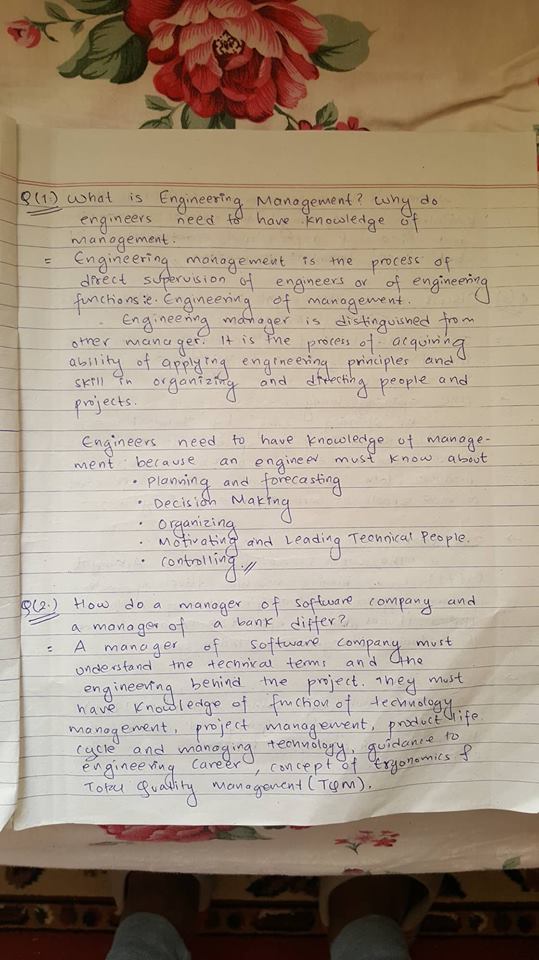 Q(1.) What is Engineering Management? Why do
engineers need to have knowledge of
management.
= Engineering management is the process of
direct supervision of engineers or of engineering
functions i.e. Engineering of management.
Engineering manager is distinguished from
other manager. It is the process of acquiring
ability of applying engineering principles and
skill in organizing and directing people and
projects.
Engineers need to have knowledge of manage-
ment because an engineer must know about
• Planning and forecasting
• Decision Making
• Organizing
• Motivating and Leading Technical People.
• Controlling.//
Q(2.) How do a manager of software company and
a manager of a bank differ?
= A manager of software company must
understand the technical terms and the
engineering behind the project. They must
have knowledge of function of technology
management, project management, product life
cycle and managing technology, guidance to
engineering career, concept of Ergonomics &
Total Quality management (TQM).